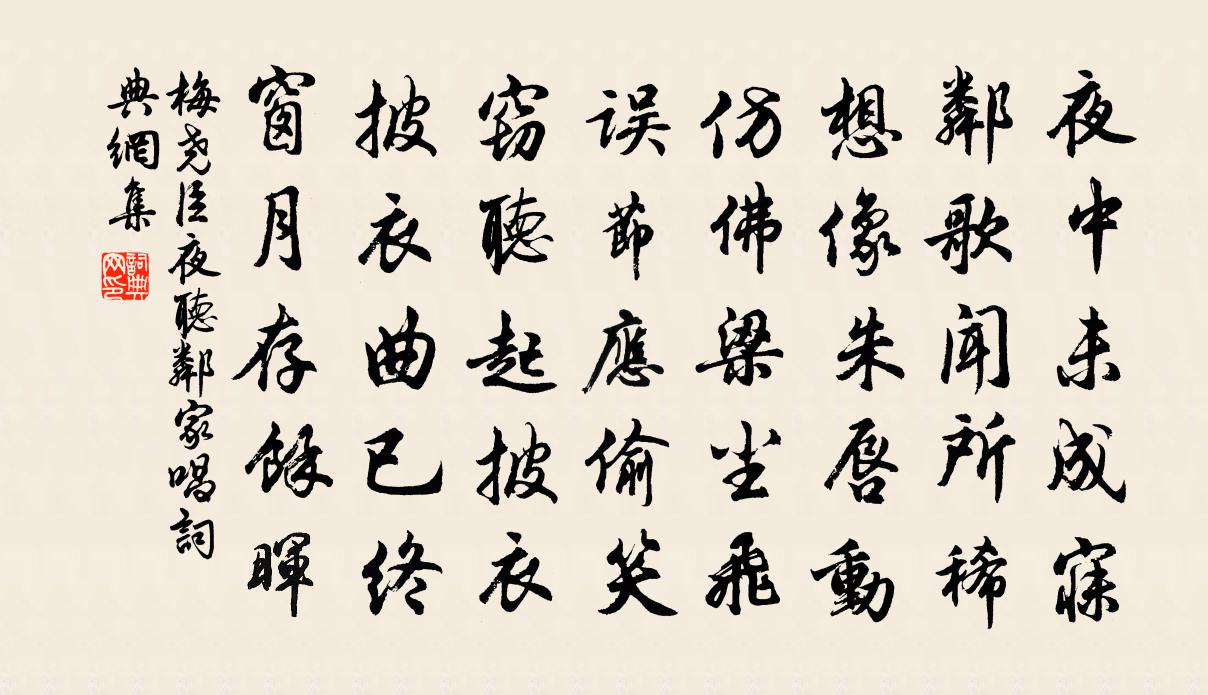 夜中未成寐
鄰歌聞所稀
想像朱唇動
仿佛梁尘飛
误節應偷笑
竊聽起披衣
披衣曲已终
窗月存餘暉
梅尧臣夜聽鄰家唱詞
典網集
詞典网印